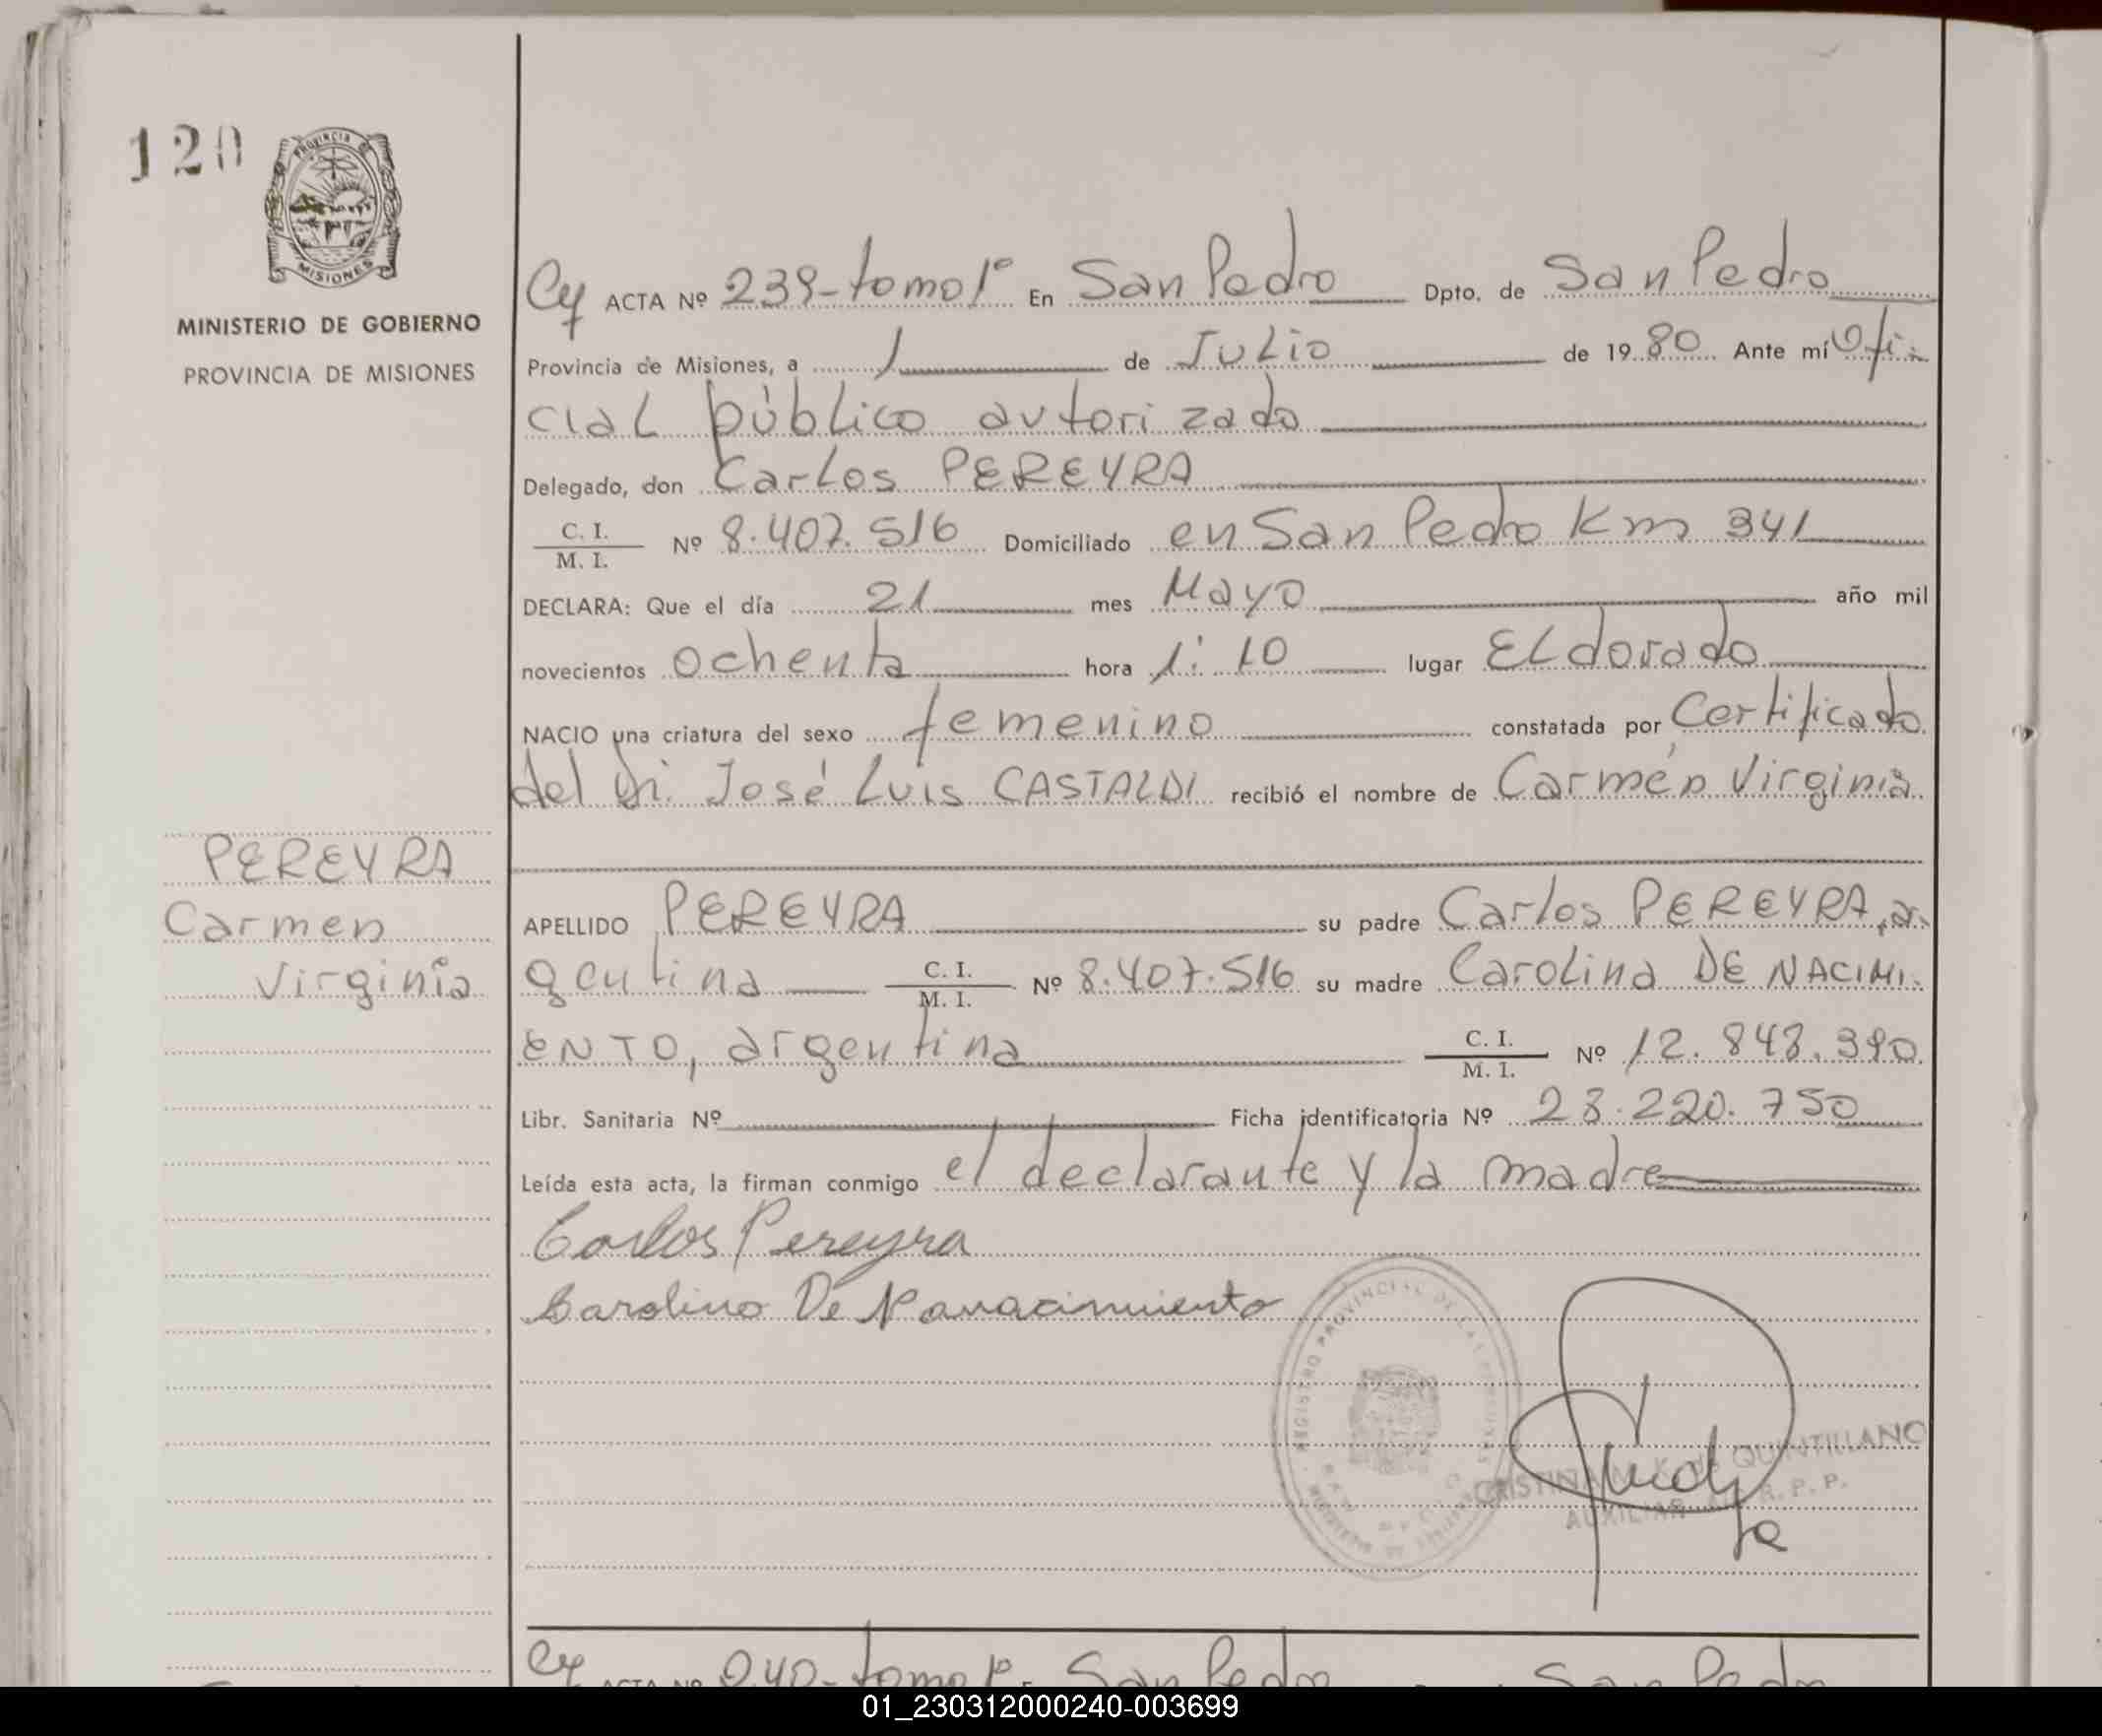 120
PROVINCIA DE
MISIONES
MINISTERIO DE GOBIERNO
PROVINCIA DE MISIONES
PEREYRA
Carmen
Virginia
Cy ACTA Nº 239-tomo 1º En San Pedro Dpto. de San Pedro
Provincia de Misiones, a 1 de Julio de 1980 Ante mí Ofi-
cial público autorizado
Delegado, don Carlos PEREYRA
C. I.
M. I. Nº 8.407.516 Domiciliado en San Pedro Km 341
DECLARA: Que el día 21 mes Mayo año mil
novecientos ochenta hora 1:10 lugar ELdorado
NACIO una criatura del sexo femenino constatada por Certificado
del Dr. José Luis CASTALDI recibió el nombre de Carmén Virginia
APELLIDO PEREYRA su padre Carlos PEREYRA, ar-
gentina C. I. M. I. Nº 8.407.516 su madre Carolina DE NACIMI-
ENTO, argentina C. I. M. I. Nº 12.848.390
Libr. Sanitaria Nº Ficha identificatoria Nº 28.220.750
Leída esta acta, la firman conmigo el declarante y la madre
Carlos Pereyra
Carolina De Nanacimiento
REGISTRO PROVINCIAL DE LAS PERSONAS
CRISTINA M. K. de QUINTILLANO
AUXILIAR R. P. P.
Cy ACTA Nº 240-tomo 1º San Pedro San Pedro
01_230312000240-003699